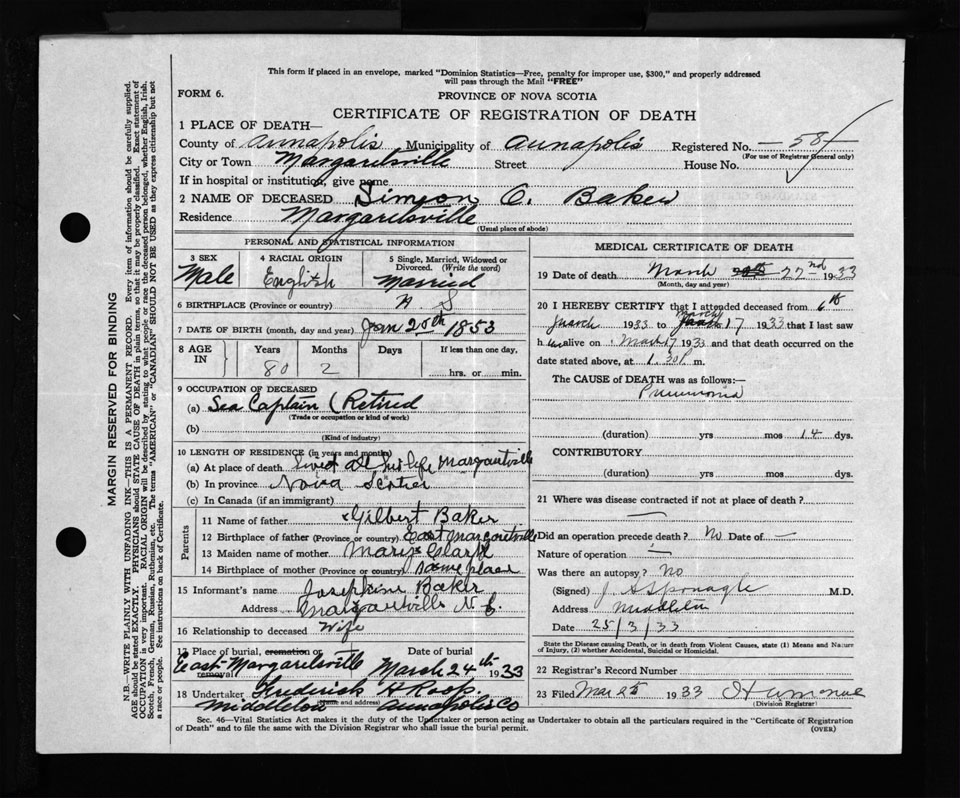 This form if placed in an envelope, marked "Dominion Statistics—Free, penalty for improper use, $300," and properly addressed
will pass through the Mail "FREE"
FORM 6.
PROVINCE OF NOVA SCOTIA
CERTIFICATE OF REGISTRATION OF DEATH
1 PLACE OF DEATH—
County of Annapolis Municipality of Annapolis Registered No. 58
(For use of Registrar General only)
City or Town Margaretsville Street House No.
If in hospital or institution, give name
2 NAME OF DECEASED Simeon C. Baker
Residence Margaretsville
(Usual place of abode)
PERSONAL AND STATISTICAL INFORMATION
3 SEX 4 RACIAL ORIGIN 5 Single, Married, Widowed or
Divorced. (Write the word)
Male English Married
6 BIRTHPLACE (Province or country) N S
7 DATE OF BIRTH (month, day and year) Jan 20th 1853
8 AGE IN Years Months Days If less than one day,
80 2 hrs. or min.
9 OCCUPATION OF DECEASED
(a) Sea Captain (Retired
(Trade or occupation or kind of work)
(b)
(Kind of industry)
10 LENGTH OF RESIDENCE (in years and months)
(a) At place of death lived all his life Margaretville
(b) In province Nova Scotia
(c) In Canada (if an immigrant)
Parents
11 Name of father Gilbert Baker
12 Birthplace of father (Province or country) East Margaretville
13 Maiden name of mother Mary Clark
14 Birthplace of mother (Province or country) Same place
15 Informant's name Josephine Baker
Address Margaretville N.S.
16 Relationship to deceased Wife
17 Place of burial, cremation or removal Date of burial
East Margaretsville March 24th 1933
18 Undertaker Frederick H Roop
(Name and address)
Middleton Annapolis Co
MEDICAL CERTIFICATE OF DEATH
19 Date of death March 20th 22nd 1933
(Month, day and year)
20 I HEREBY CERTIFY that I attended deceased from 6th
March 1933 to March 17 1933 that I last saw
h im alive on Mar 17 1933 and that death occurred on the
date stated above, at 1.30 P m.
The CAUSE OF DEATH was as follows:—
Pneumonia
(duration) yrs mos 14 dys.
CONTRIBUTORY
(duration) yrs mos dys.
21 Where was disease contracted if not at place of death?
Did an operation precede death? No Date of —
Nature of operation —
Was there an autopsy? No
(Signed) J A Sponagle M.D.
Address Middleton
Date 25/3/33
State the Disease causing Death, or in death from Violent Causes, state (1) Means and Nature
of Injury, (2) whether Accidental, Suicidal or Homicidal.
22 Registrar's Record Number
23 Filed Mar 25 1933
(Division Registrar)
Sec. 46—Vital Statistics Act makes it the duty of the Undertaker or person acting as Undertaker to obtain all the particulars required in the "Certificate of Registration
of Death" and to file the same with the Division Registrar who shall issue the burial permit.
(OVER)
MARGIN RESERVED FOR BINDING
N.B.—WRITE PLAINLY WITH UNFADING INK—THIS IS A PERMANENT RECORD. Every item of information should be carefully supplied.
AGE should be stated EXACTLY. PHYSICIANS should STATE CAUSE OF DEATH in plain terms, so that it may be properly classified. Exact statement of
OCCUPATION is very important. RACIAL ORIGIN will be described by stating to what people or race the deceased person belonged, whether English, Irish,
Scotch, French, German, Russian, Ruthenian, etc. The terms "AMERICAN" or "CANADIAN" SHOULD NOT BE USED as they express citizenship but not
a race or people. See instructions on back of Certificate.